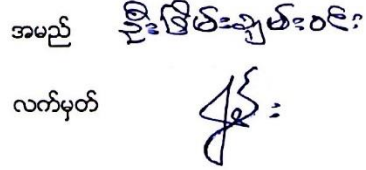 အမည် ဦးငြိမ်းချမ်းဝင်း
လက်မှတ်